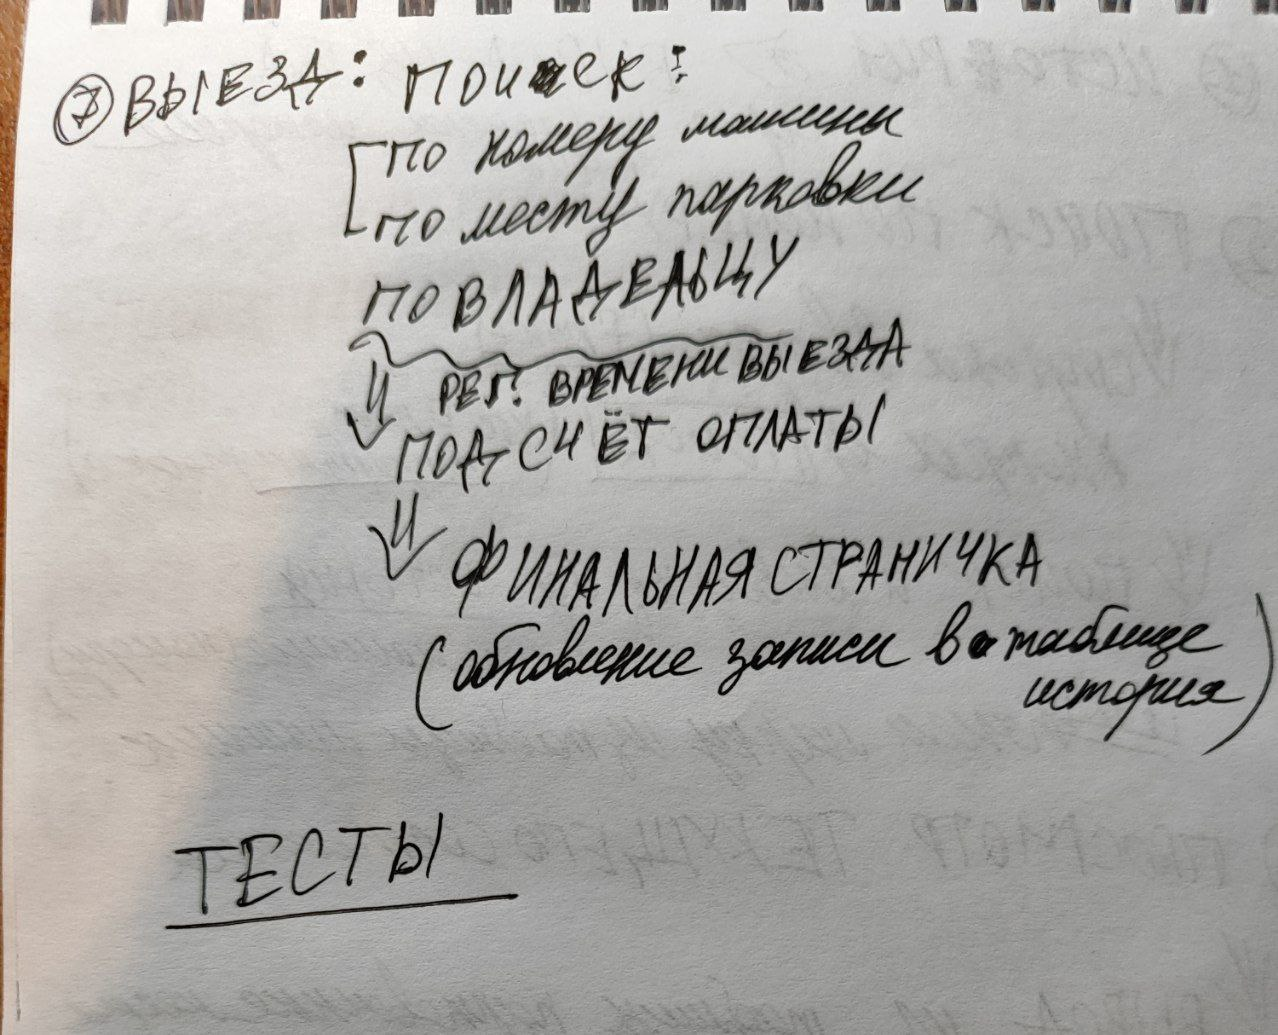 ⑦ ВЫЕЗД: ПОИСК:
ПО номеру машины
ПО месту парковки
ПО ВЛАДЕЛЬЦУ
РЕГ. ВРЕМЕНИ ВЫЕЗДА
ПОДСЧЁТ ОПЛАТЫ
ФИНАЛЬНАЯ СТРАНИЧКА
(обновление записи в таблице
история)
ТЕСТЫ